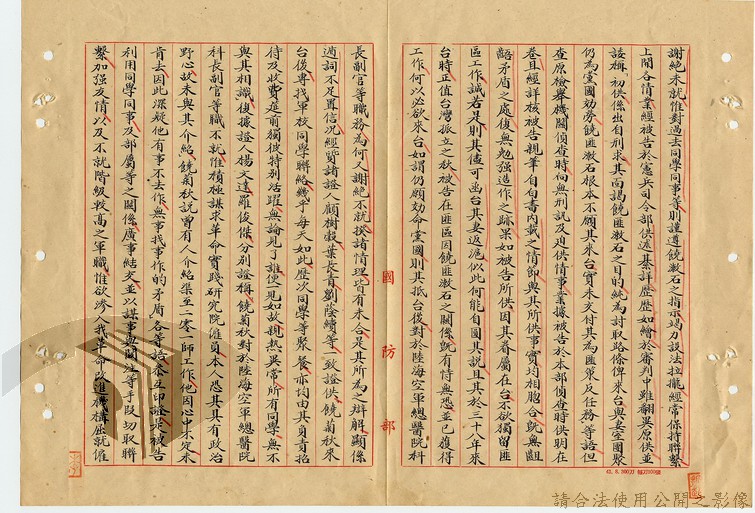 謝絕未就惟對過去同學同事等則謹遵饒漱石之指示竭力設法拉攏經常保持聯繫
上開各情業經被告於憲兵司令部供述綦詳歷歷如繪於審判中雖翻異原供並
諉稱初供係出自刑求其面謁饒匪漱石之目的純為討取路條俾來台與妻室團聚
仍為黨國効勞饒匪漱石根本不願其來台實未交付其為匪策反任務等語但
查原檢舉機關偵查時尚無刑訊及逼供情事業據被告於本部偵查時供明在
卷且經詳核被告親筆自白書內載之情節與其所供事實均相脗合既無齟
齬矛盾之處復無勉強造作之跡果如被告所供因其眷屬在台不欲獨留匪
區工作誠若是則其儘可函台其妻返滬似此何能自圓其說且其於三十八年來
台時正值台灣孤立之秋被告在匪區因饒匪漱石之關係既有恃無恐並已獲得
工作何以必欲來台如謂仍願効命黨國則其抵台後對於陸海空軍總醫院科
長副官等職務為何又謝絕不就揆諸情理皆有未合足見其所為之辯解顯係
遁詞不足置信況經質諸證人顧樹毅葉長青劉蔭績等一致證供饒菊秋來
台後專找軍校同學聯絡幾乎每天如此歷次同學等聚餐亦均由其負責招
待及收費進前獨彼特別活躍無論見了誰便一見如故親熱異常所有同學無不
與其相識復據證人楊文達羅俊傑分別證稱饒菊秋對於陸海空軍總醫院
科長副官等職不就惟積極謀求革命實踐研究院雇員本人恐其具有政治
野心故未與其介紹饒菊秋說曾有人介紹渠至二零一師工作他因心中不定未
肯去因此深疑他有事不去作無事找事作的矛盾各等語參互印證是被告
利用同學同事及部屬等之關係廣事結交並以謀事與關注等手段切取聯
繫加強友情以及不就階級較高之軍職惟欲滲入我革命改進機構屈就僱
國防部
請合法使用公開之影像